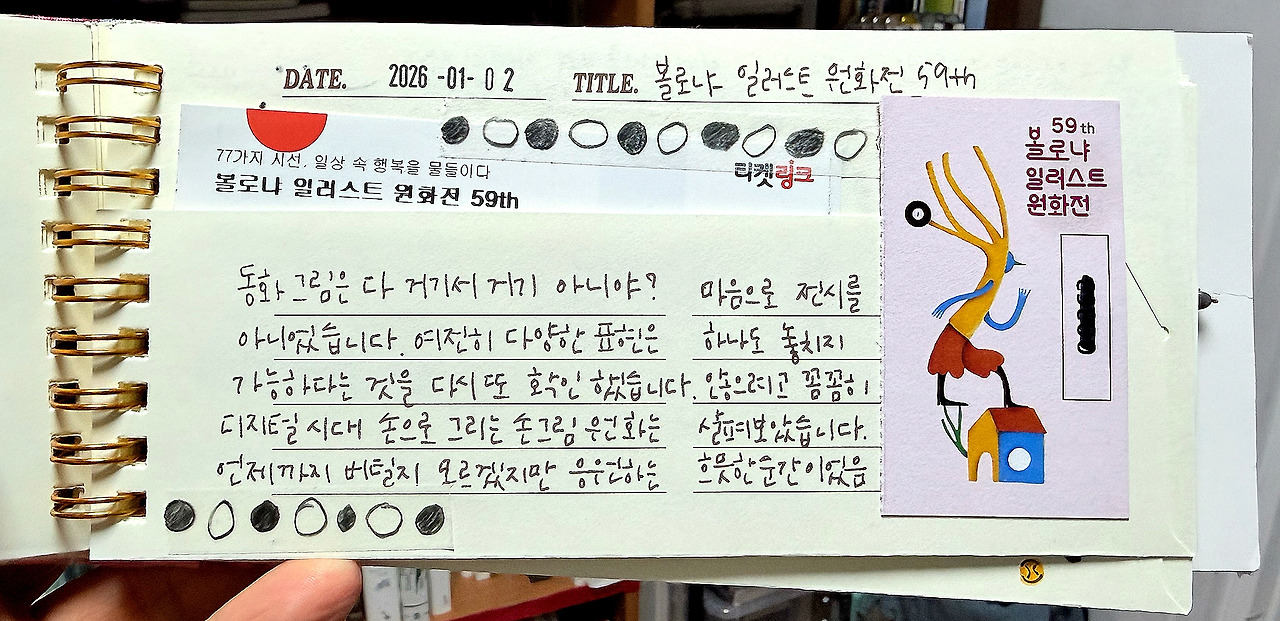 DATE. 2026-01-02
TITLE. 볼로냐 일러스트 원화전 59th
77가지 시선, 일상 속 행복을 물들이다
티켓링크
볼로냐 일러스트 원화전 59th
59th
볼로냐
일러스트
원화전
동화 그림은 다 거기서 거기 아니야?
아니었습니다. 여전히 다양한 표현은
가능하다는 것을 다시 또 확인 했습니다.
디지털 시대 손으로 그리는 손그림 원화는
언제까지 버틸지 모르겠지만 응원하는
마음으로 전시를
하나도 놓치지
않으려고 꼼꼼히
살펴보았습니다.
흐뭇한 순간이었음